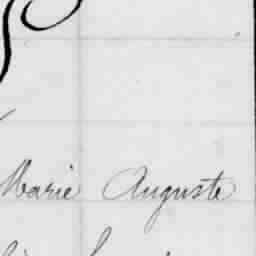 Marie Auguste